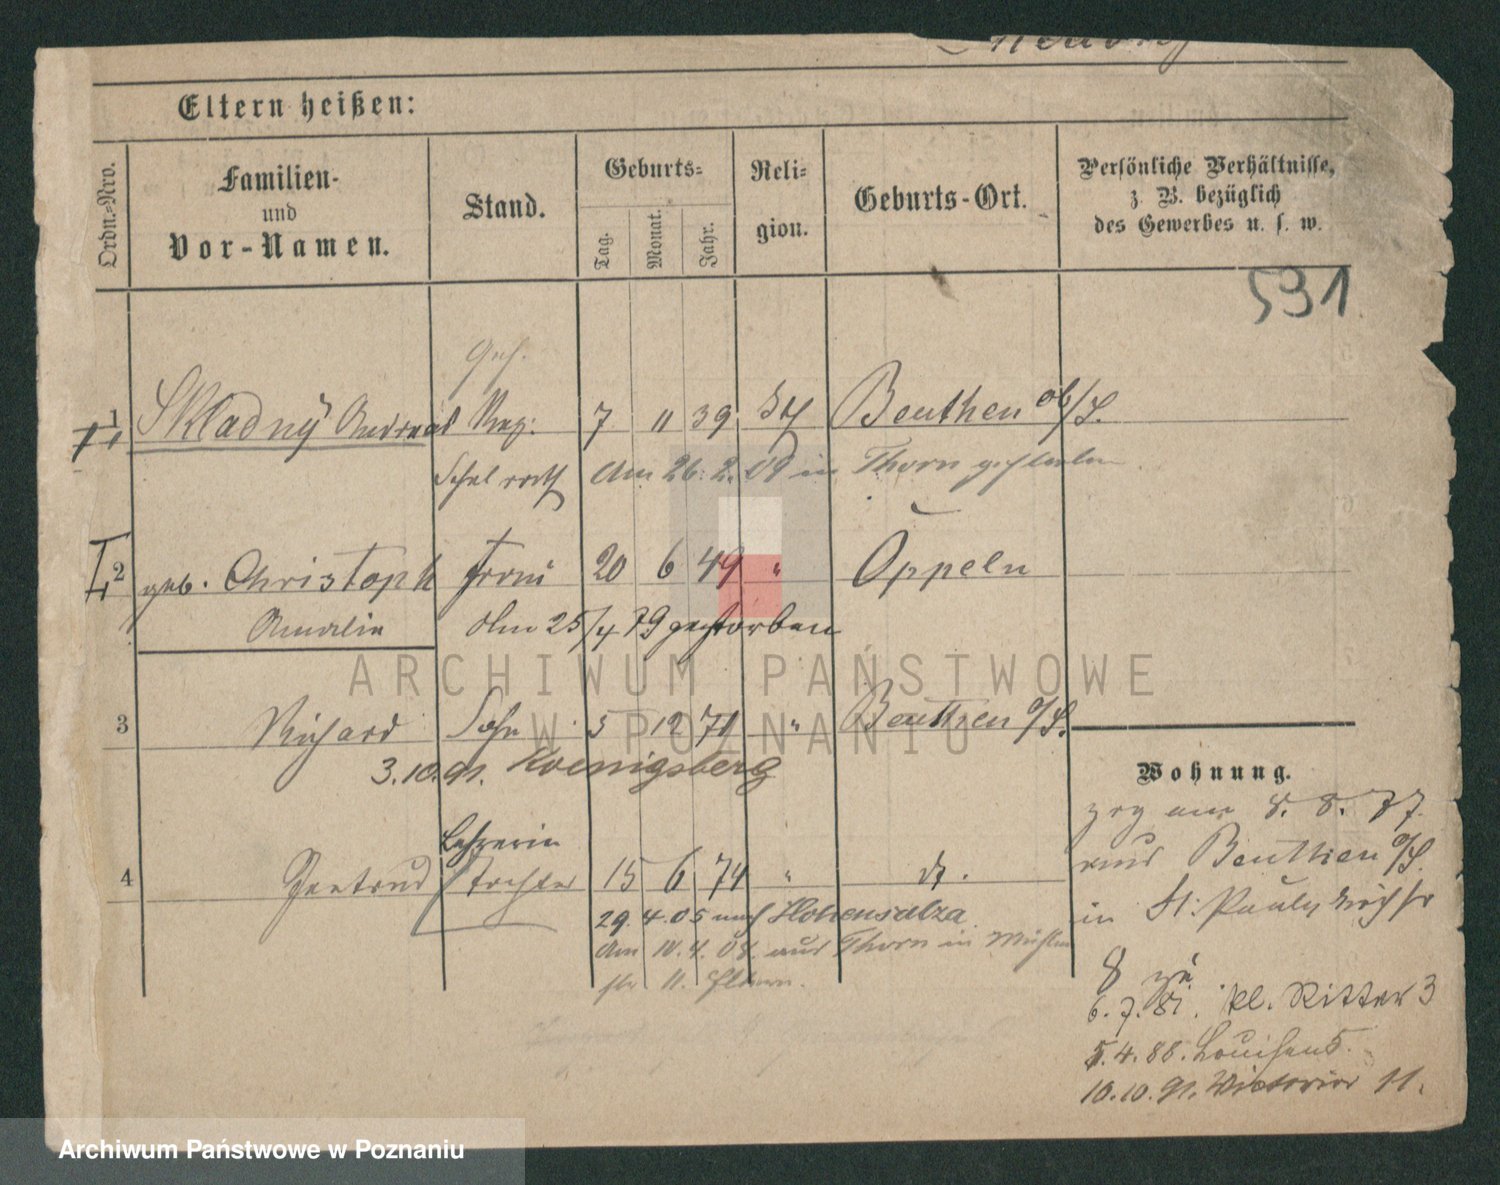 Eltern heißen:
Ordn.-Nro.
Familien-
und
Vor-Namen.
Stand.
Geburts-
Tag.
Monat.
Jahr.
Reli-
gion.
Geburts-Ort.
Persönliche Verhältnisse,
z. B. bezüglich
des Gewerbes u. s. w.
591
Geh.
1 Skladny Andreas Reg: 7 11 39 kth Beuthen ob/S.
Schulrath Am 26.2.09 in Thorn gestorben
2 geb. Christoph Frau 20 6 49 " Oppeln
Amalie Am 25/4 79 gestorben
3 Richard Sohn 5 12 71 " Beuthen o/S.
3.10.91. Koenigsberg
Lehrerin
4 Gertrud Tochter 15 6 74 " dt.
29.4.05 nach Hohensalza
Am 10.4.08. aus Thorn in Mühlen
str 11. Eltern.
Wohnung.
zog am 8. 8. 77.
aus Beuthen o/S.
in St: Paulikirchstr
8 zu
6.7.81. kl. Ritter 3
5.4.88. Louisen 5.
10.10.91. Victoria 11.
ARCHIWUM PAŃSTWOWE
W POZNANIU
Archiwum Państwowe w Poznaniu